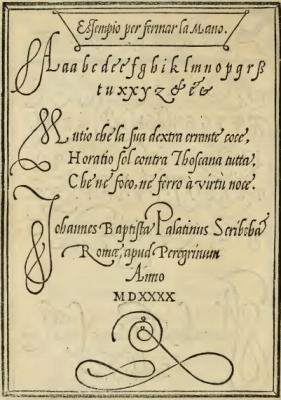 Essempio per fermar la Mano.
A a a b c d e e f g h i k l m n o p q r s ß
t u x x y z & e &
Mutio che la sua dextra errante coce,
Horatio sol contra Thoscana tutta,
Che nè foco, ne ferro à virtù noce.
Johannes Baptista Palatinus Scribebā
Romæ, apud Peregrinum
Anno
MDXXXX